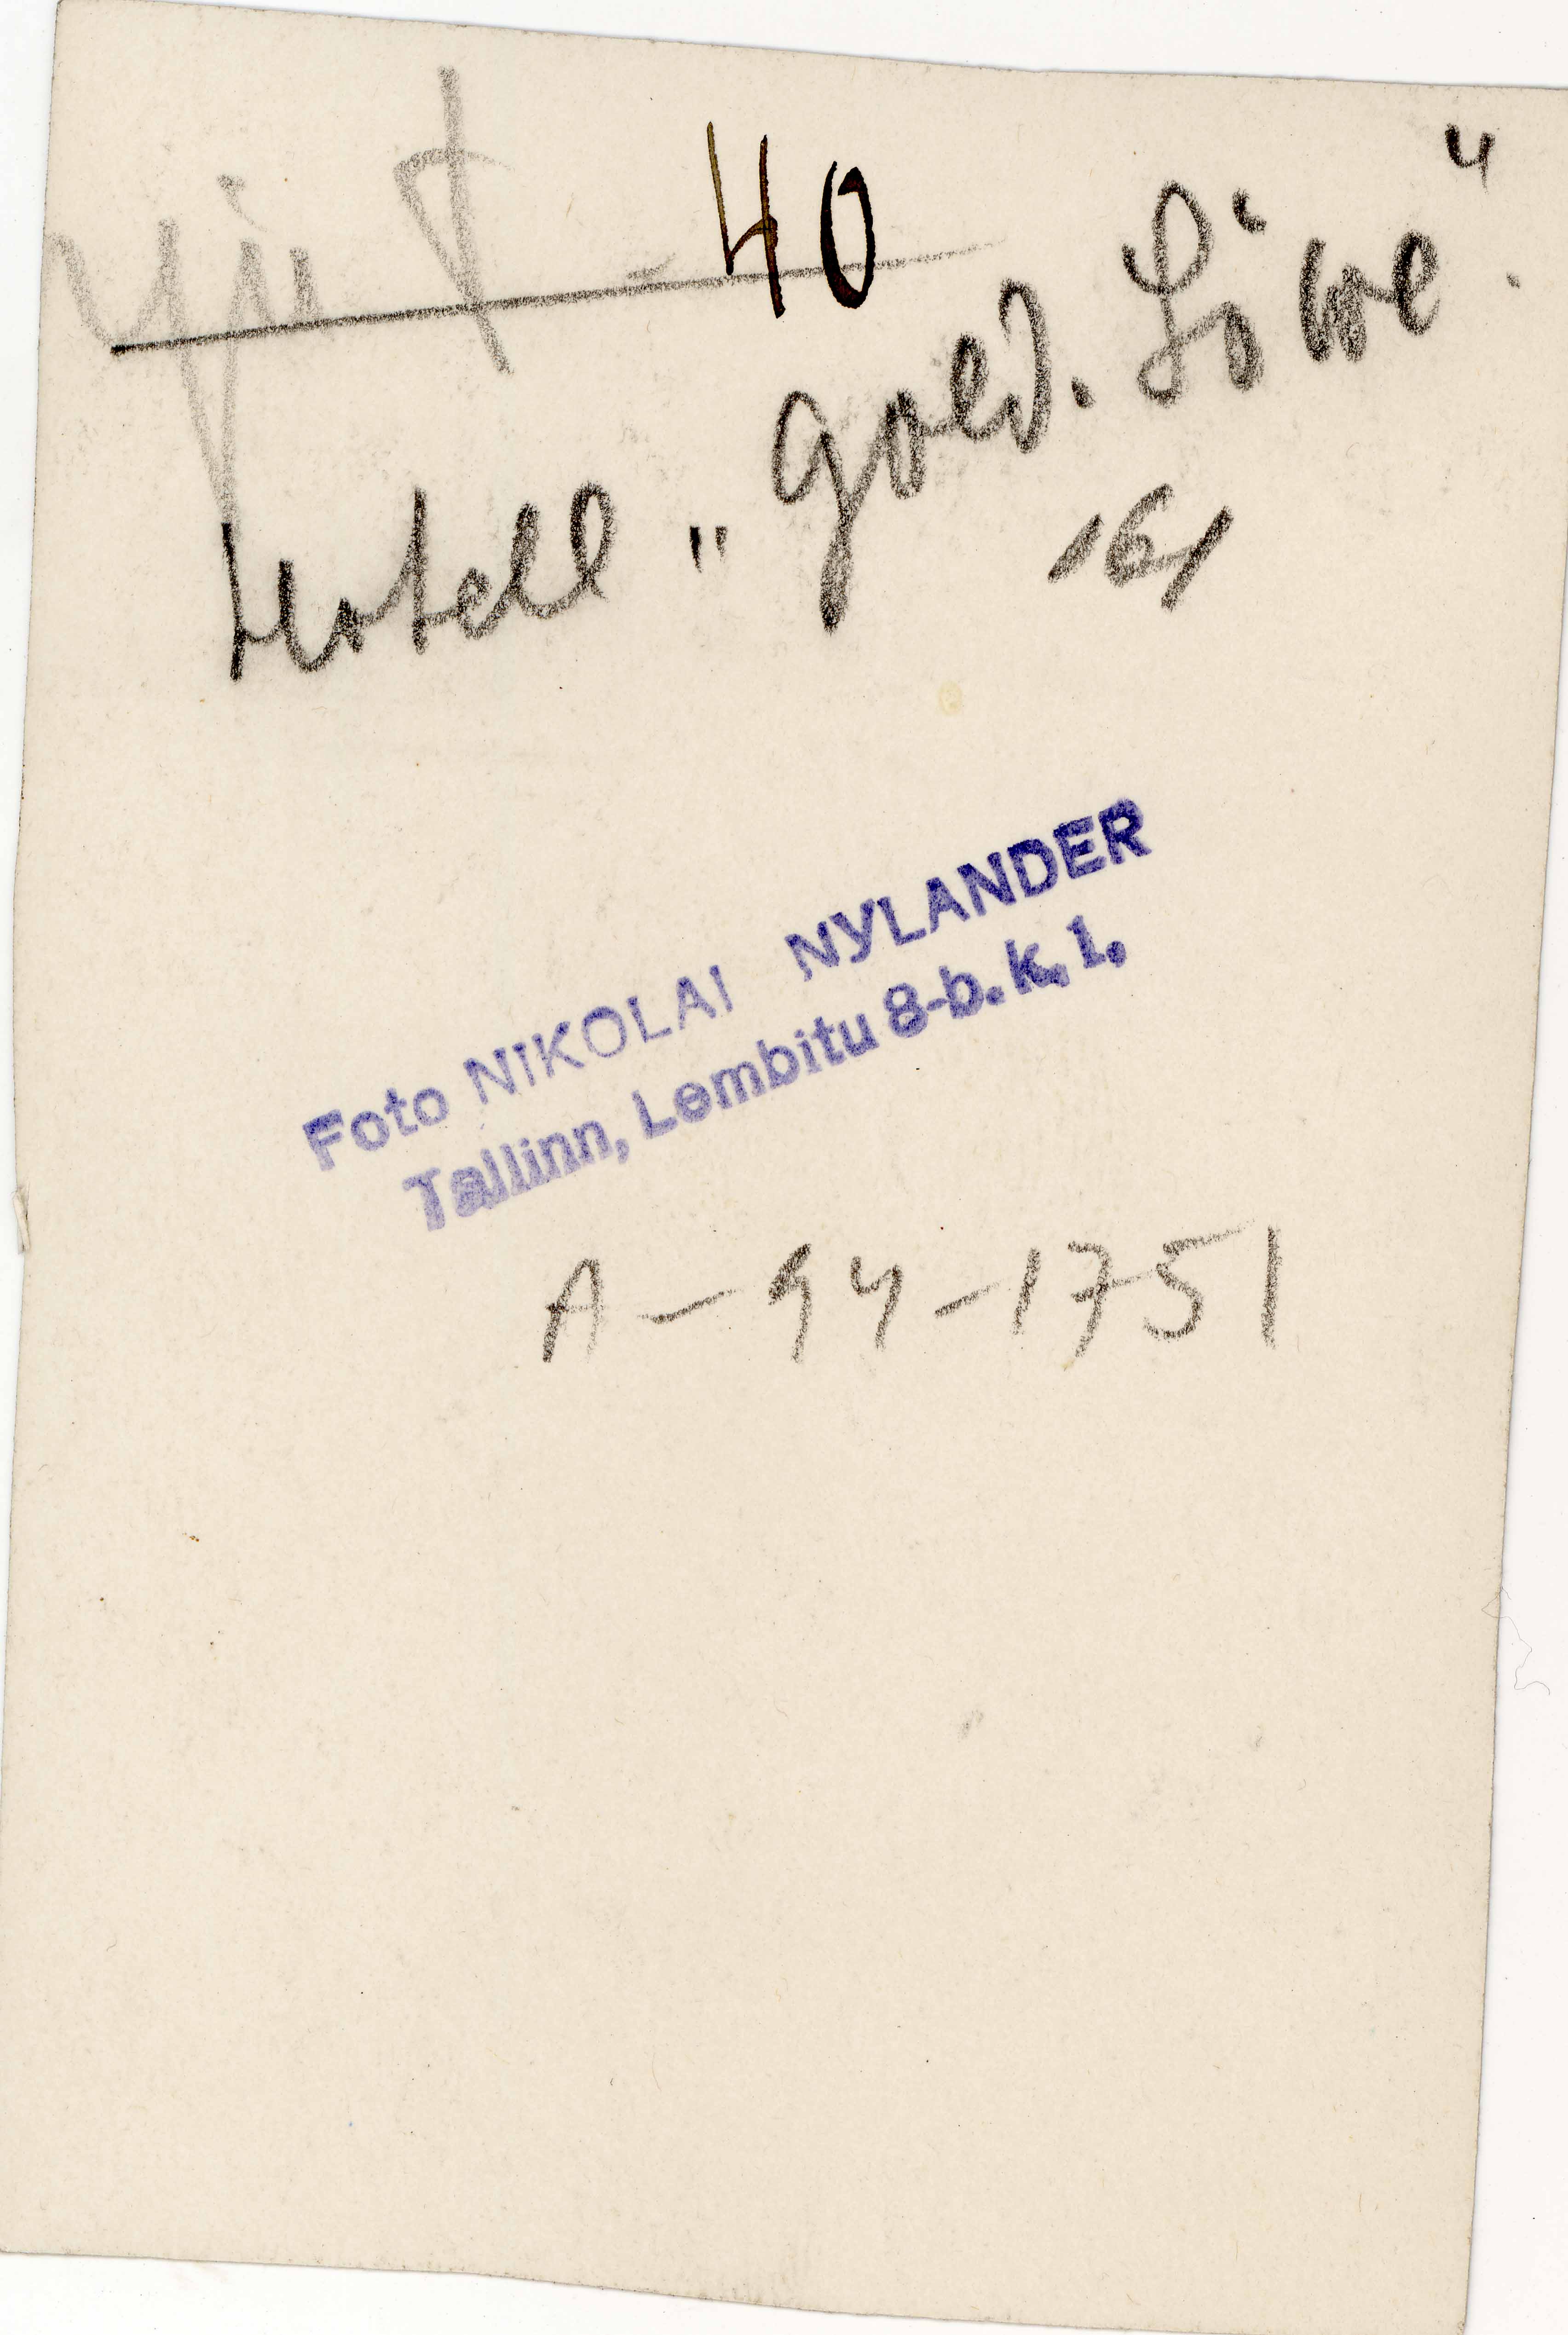 40
Hotell „Gold. Löwe“.
161
Foto NIKOLAI NYLANDER
Tallinn, Lembitu 8-b. k. 1.
A-94-1751